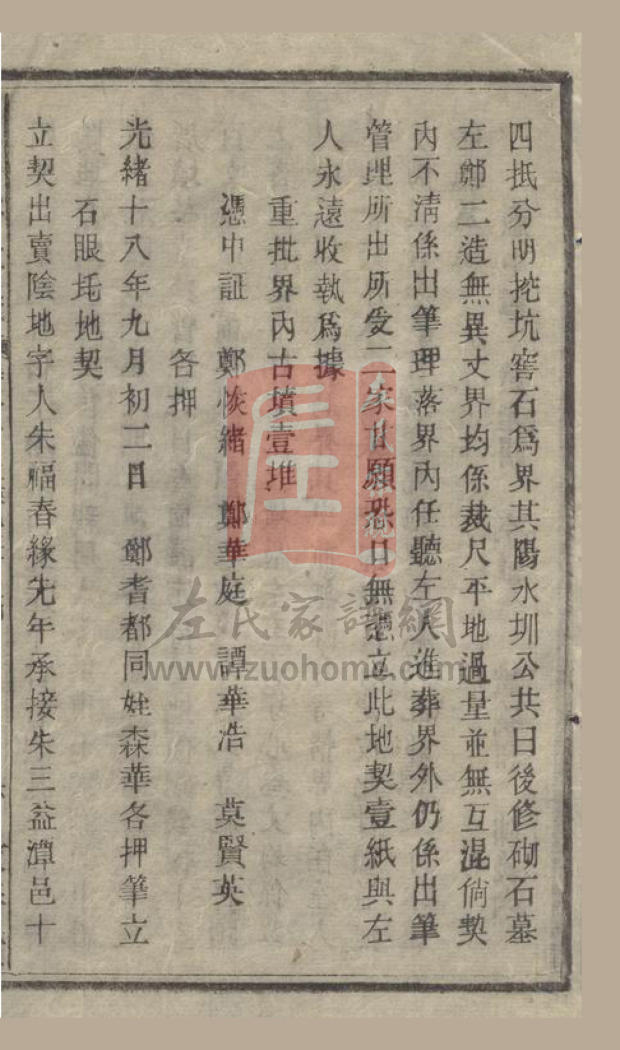 四抵分明挖坑窖石爲界其陽水圳公共日後修砌石墓
左鄭二造無異丈界均係裁尺平地過量並無互混倘契
內不淸係出筆理落界內任聽左人進葬界外仍係出筆
管理所出所受二家甘願恐口無憑立此地契壹紙與左
人永遠收執爲據
重批界內古墳壹堆
憑中証 鄭恢緒 鄭華庭 譚華浩 莫賢英
各押
光緒十八年九月初二日 鄭耆都同姪森華各押筆立
石眼坉地契
立契出賣陰地字人朱福春緣先年承接朱三益潭邑十
左氏家譜網
www.zuohome.com